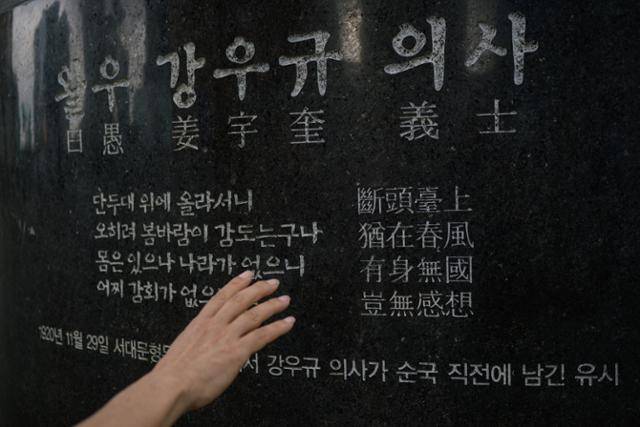 왈우 강우규 의사
曰愚 姜宇奎 義士
단두대 위에 올라서니
오히려 봄바람이 감도는구나
몸은 있으나 나라가 없으니
어찌 감회가
斷頭臺上
猶在春風
有身無國
豈無感想
1920년 11월 29일 강우규 의사가 순국 직전에 남긴 유시